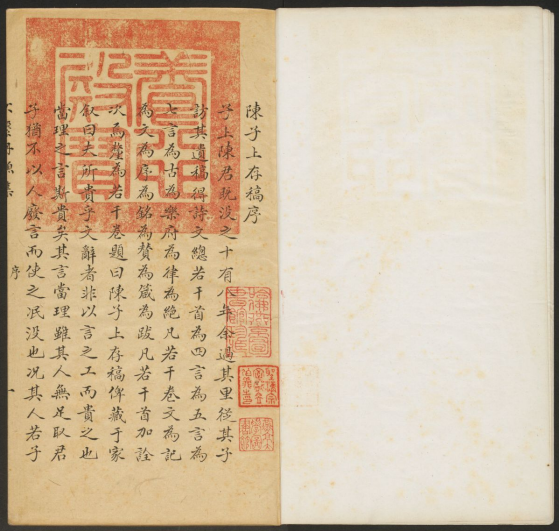 陳子上存稿序
子上陳君既没之十有八年余過其里從其子
訪其遺稿得詩文總若干首為四言為五言為
七言為古為樂府為律為絶凡若干卷文為記
為文為序為銘為贊為箴為跋凡若干首加詮
次焉釐為若干卷題曰陳子上存稿俾藏于家
叙曰夫所貴乎文辭者非以言之工而貴之也
當理之言斯貴矣其言當理雖其人無足取君
子猶不以人廢言而使之泯没也况其人若子
序
一